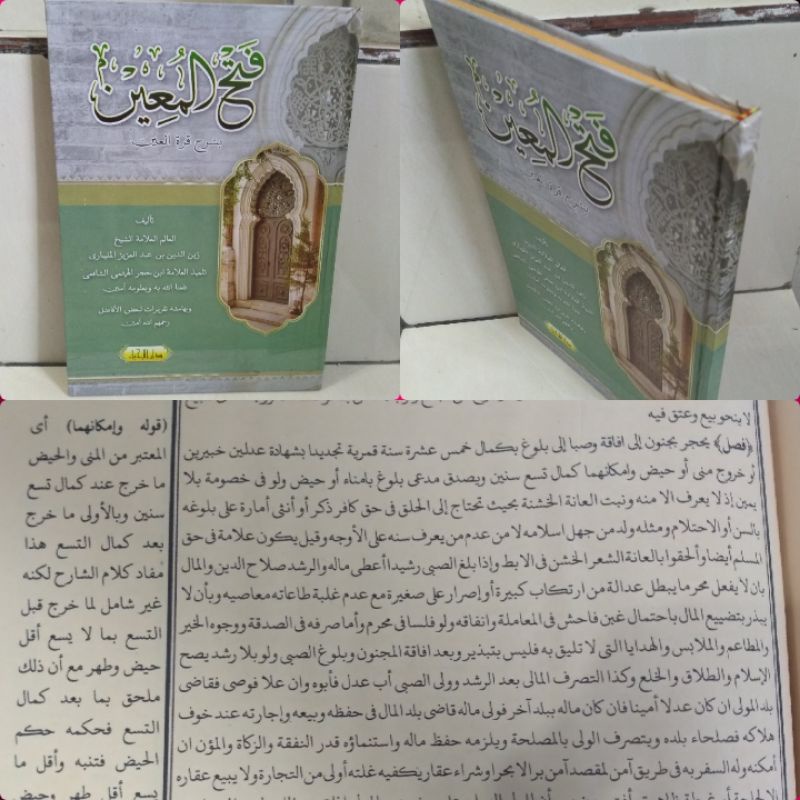 فتح المعين
بشرح قرة العين
تأليف
العالم العلامة الشيخ
زين الدين بن عبد العزيز المليباري
تلميذ العلامة ابن حجر الهيتمي الشافعي
نفعنا الله به وبعلومه آمين
وبهامشه تقريرات لبعض الأفاضل
رحمهم الله آمين
فتح المعين
بشرح قرة العين
لا بنحو بيع وعتق فيه
﴿فصل﴾ يحجر بجنون إلى افاقة وصبا إلى بلوغ بكمال خمس عشرة سنة قمرية تحديدا بشهادة عدلين خبيرين
أو خروج منى أو حيض وامكانهما كمال تسع سنين ويصدق مدعى بلوغ بامناء أو حيض ولو فى خصومة بلا
يمين إذ لا يعرف الا منه ونبت العانة الخشنة بحيث تحتاج إلى الحلق فى حق كافر ذكر أو أنثى أمارة على بلوغه
بالسن أو الاحتلام ومثله ولد من جهل اسلامه لا من عدم من يعرف سنه على الأوجه وقيل يكون علامة فى حق
المسلم أيضا وألحقوا بالعانة الشعر الخشن فى الابط وإذا بلغ الصبى رشيدا أعطى ماله والرشد صلاح الدين والمال
بان لا يفعل محرما يبطل عدالة من ارتكاب كبيرة أو إصرار على صغيرة مع عدم غلبة طاعاته معاصيه وبأن لا
يبذر بتضييع المال باحتمال غبن فاحش فى المعاملة وانفاقه ولو فلسا فى محرم وأما صرفه فى الصدقة ووجوه الخير
والمطاعم والملابس والهدايا التى لا تليق به فليس بتبذير وبعد افاقة المجنون وبلوغ الصبى ولو بلا رشد يصح
الإسلام والطلاق والخلع وكذا التصرف المالى بعد الرشد وولى الصبى أب عدل فأبوه وان علا فوصى فقاضى
بلد المولى ان كان عدلا أمينا فان كان ماله ببلد آخر فولى ماله قاضى بلد المال فى حفظه وبيعه وإجارته عند خوف
هلاكه فصلحاء بلده ويتصرف الولى بالمصلحة ويلزمه حفظ ماله واستنماؤه قدر النفقة والزكاة والمؤن ان
أمكنه وله السفر به فى طريق آمن لمقصد آمن برا لا بحرا وشراء عقار يكفيه غلته أولى من التجارة ولا يبيع عقاره
(قوله وإمكانهما) أى
المعتبر من المنى والحيض
ما خرج عند كمال تسع
سنين وبالأولى ما خرج
بعد كمال التسع هذا
مفاد كلام الشارح لكنه
غير شامل لما خرج قبل
التسع بما لا يسع أقل
حيض وطهر مع أن ذلك
ملحق بما بعد كمال
التسع فحكمه حكم
الحيض فتنبه وأقل ما
يسع أقل طهر وحيض